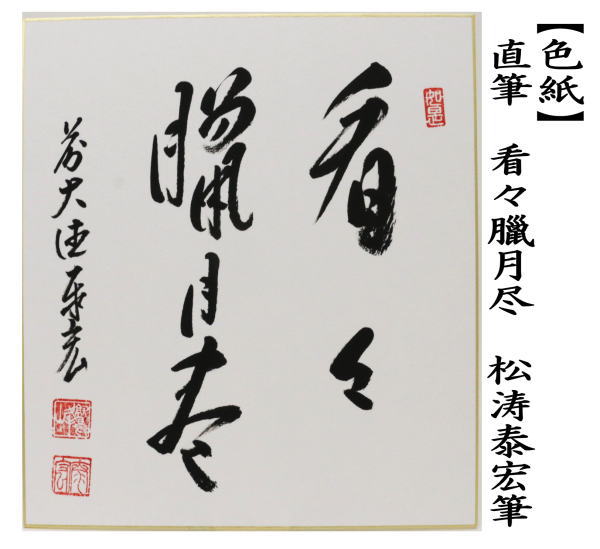 【色紙】
直筆　看々臘月尽　松涛泰宏筆
如是
看々
臘月尽
前大徳泰宏